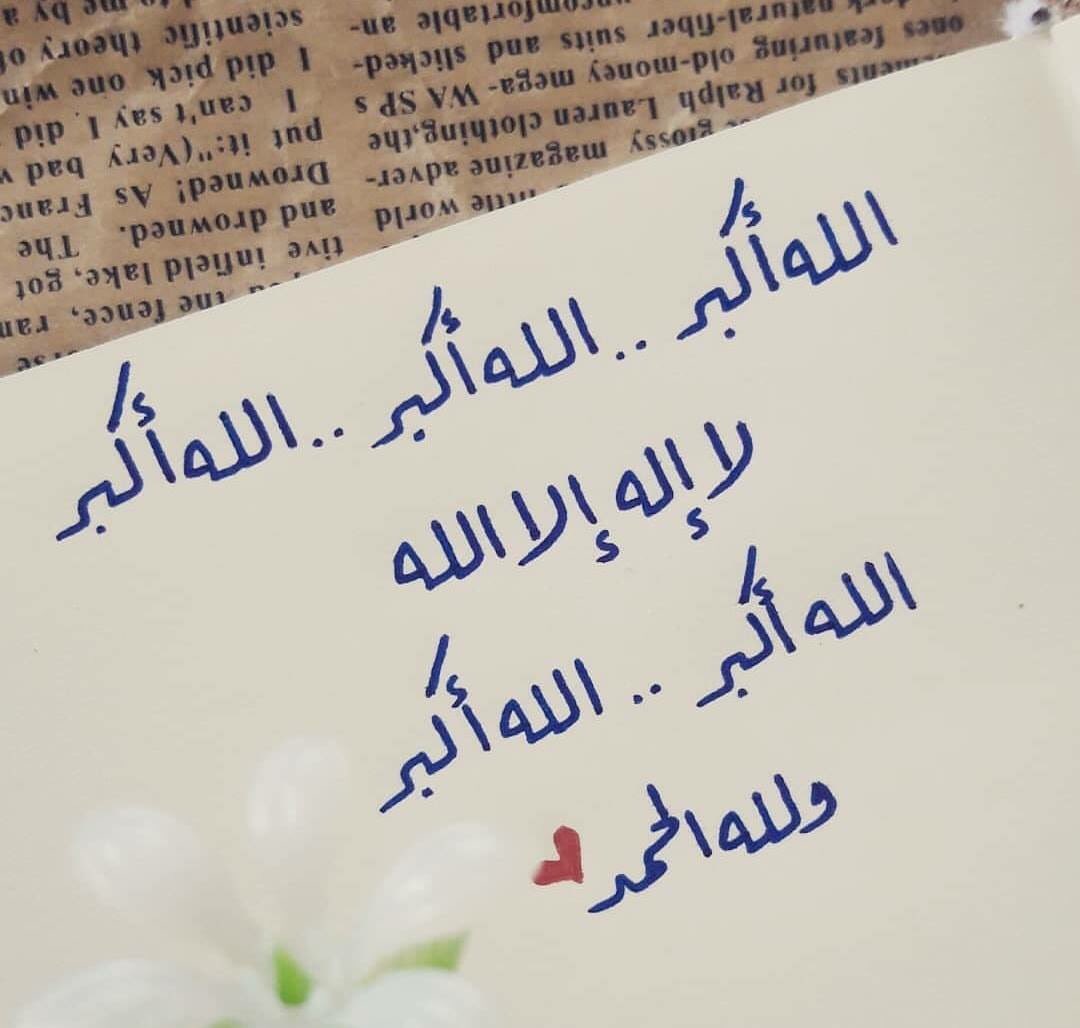 الله أكبر .. الله أكبر .. الله أكبر
لا إله إلا الله
الله أكبر .. الله أكبر
ولله الحمد
scientific theory of
I did pick one win
I can't say I did
put it: "(Very) bad
Drowned! As Franc
and drowned. The
tive infield lake, got
the fence, ran
an-
ones featuring
natural-fiber suits and slicked-
old-money mega- WA SP s
for Ralph Lauren clothing, the
glossy magazine adver-
little world